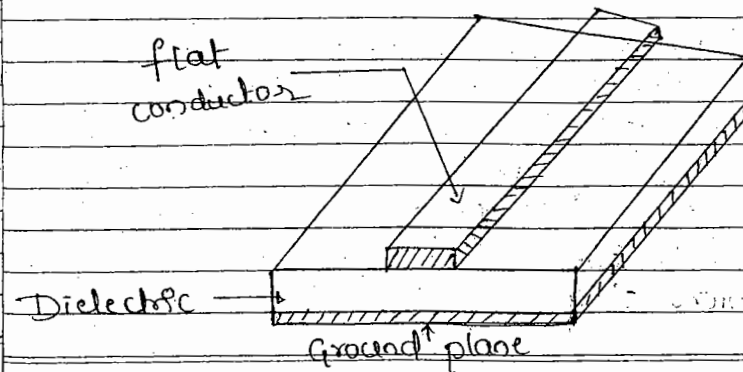 flat
conductor
Dielectric
Ground plane